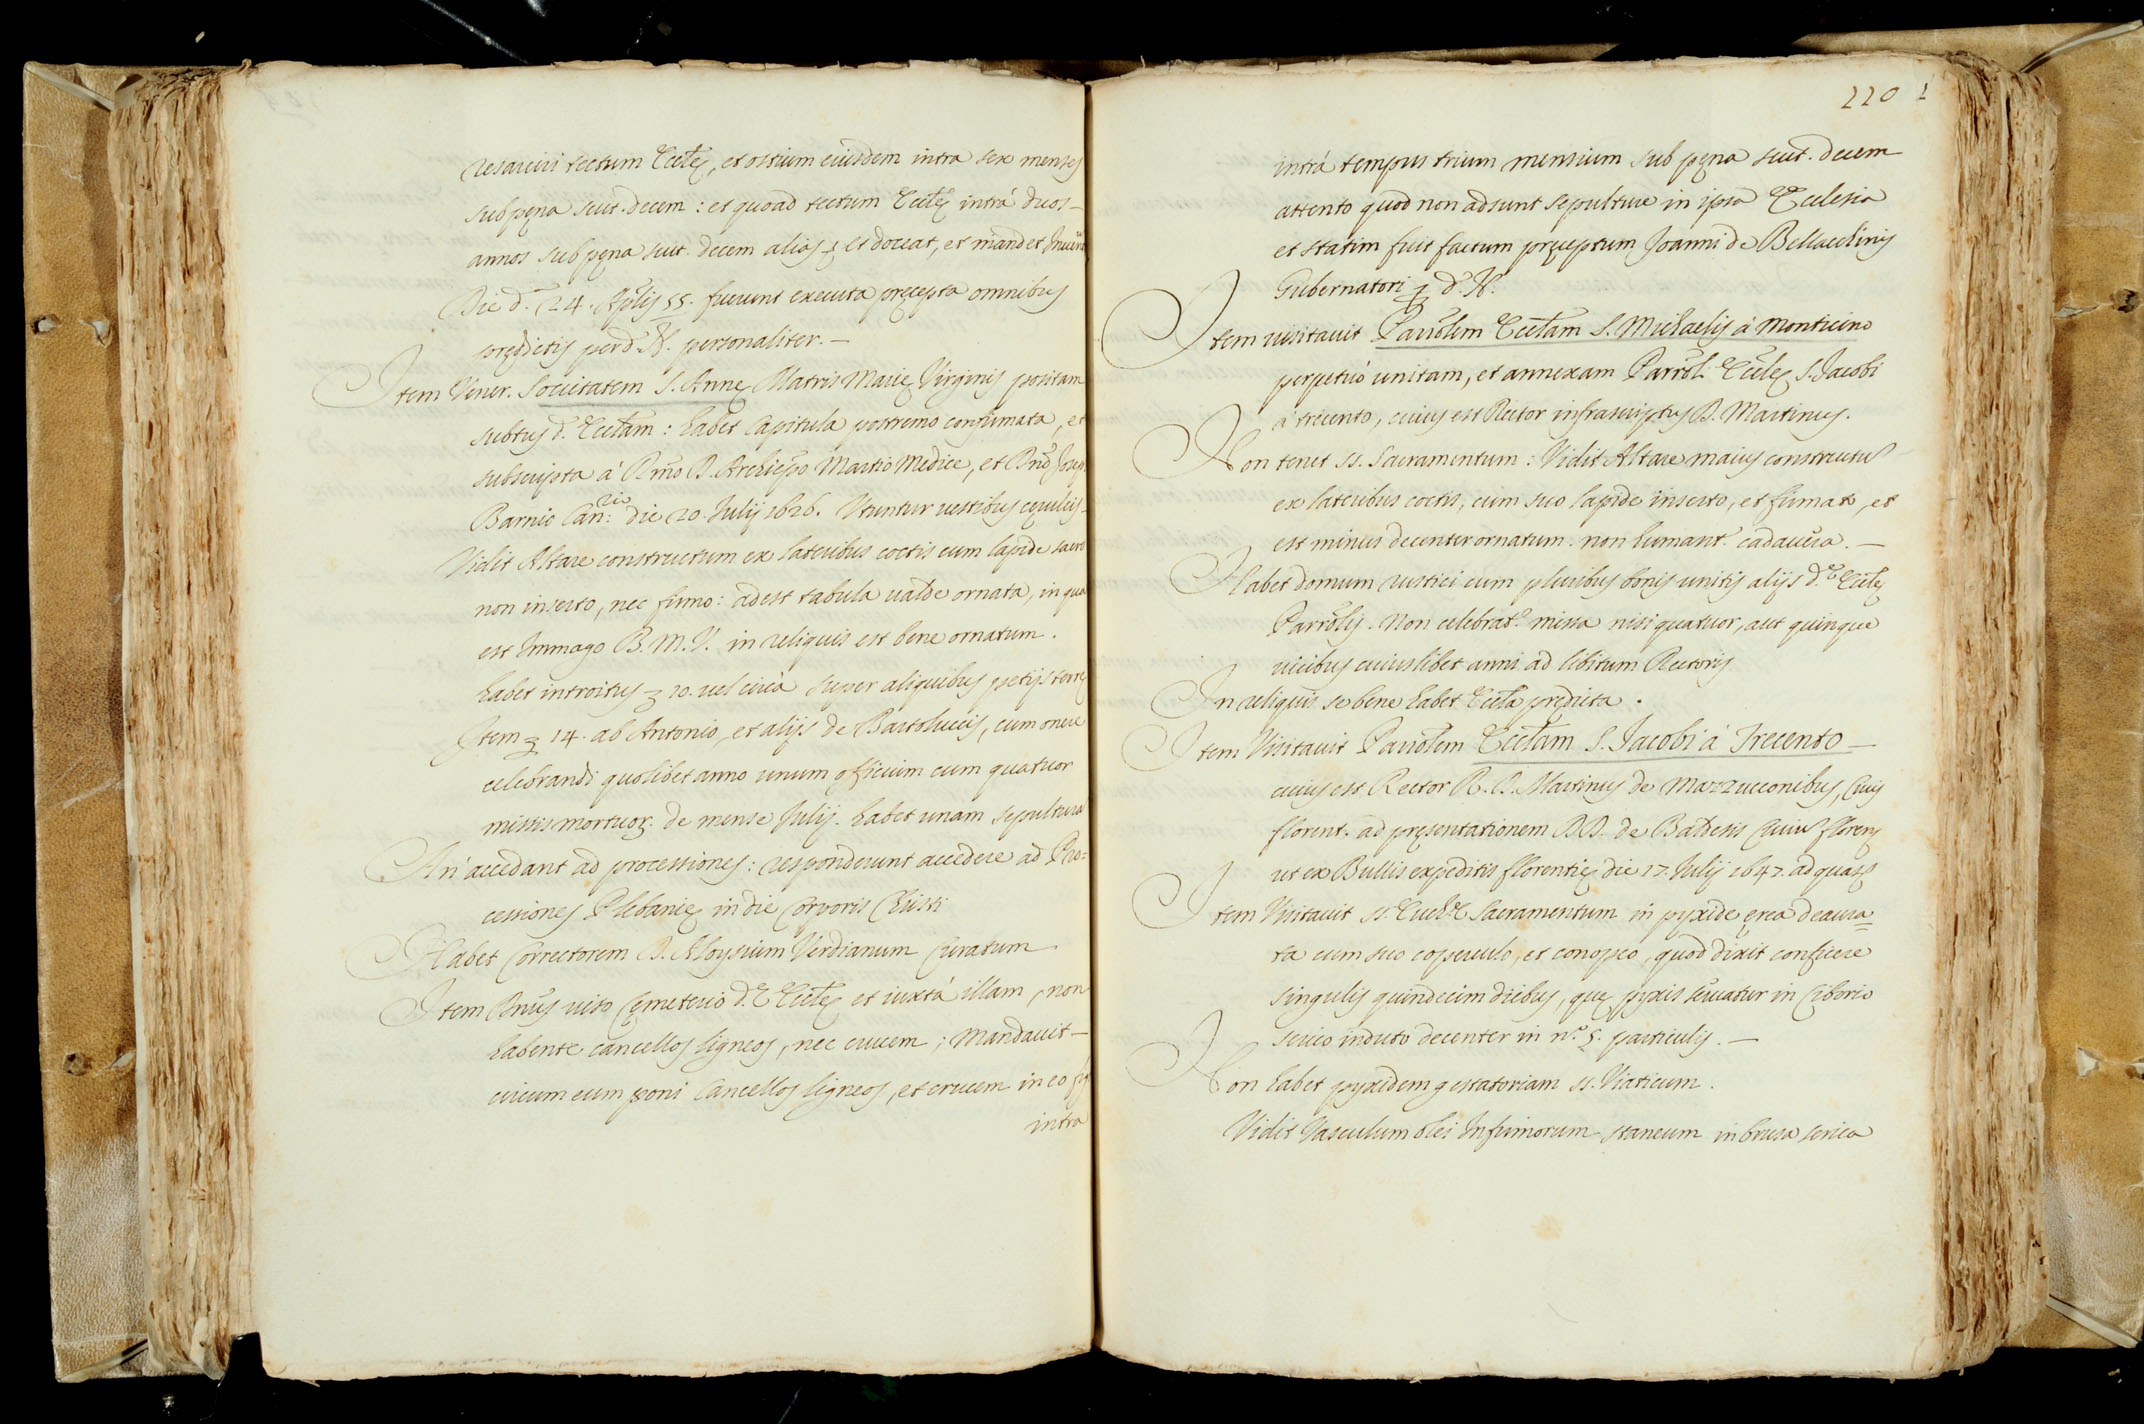 resarciri tectum Eccłę, et ostium eiusdem intra sex menses
sub pęna scut. decem : et quoad tectum Eccłę intrà duos –
annos sub pęna scut. decem aliàs et doceat, et mandet
Die dᵃ 24. Apłis 55. fuerunt executa pręcepta omnibus
prędictis per d. N. personaliter. –
Item Vener. Societatem S. Annę Matris Marię Virginis positam
subtus dᵃ Eccłam : habet Capitula postremo confirmata, et
subscripta à Rmo D. Archiepo Martio Medice, et Dno Josep
Barnio Canᶜⁱᵒ: die 20. Julij 1626. Utuntur vestibus cęruleis –
Vidit Altare constructum ex lateribus coctis cum lapide sacro
non inserto, nec firmo : adest tabula valde ornata, in qua
est Immago B. M. V. in reliquis est bene ornatum.
habet introitus 10. vel circà super aliquibus petijs terrę
Item 14. ab Antonio, et alijs de Bartoluccis, cum onere
celebrandi quolibet anno unum officium cum quatuor
missis mortuoꝝ. de mense Julij. habet unam sepultura
An' accedant ad processiones : responderunt accedere ad Pro=
cessiones Plebanię in die Corporis Christi
Habet Correctorem D. Aloysium Verdianum Curatum
Item Dnus viso Cęmeterio d. Eccłę et iuxtà illam, non
habente cancellos ligneos, nec crucem ; Mandavit –
circum eum poni Cancellos ligneos, et crucem in eo
intra
220 1
intrà tempus trium mensium sub pęna scut. decem
attento quod non adsunt sepulture in ipsa Ecclesia
et statim fuit factum pręceptum Joanni de Bellacchinis
Gubernatori ꝑ dᵃ N.
Item visitavit Parrołem Eccłam S. Michaelis à Monticino
perpetuò unitam, et annexam Parroł. Eccłę S. Jacobi
à trecento, cuius est Rector infrascriptus D. Martinus.
Non tenet SS. Sacramentum : Vidit Altare maius constructu
ex lateribus coctis, cum suo lapide inserto, et firmato, et
est minus decenter ornatum. non humantᵣ cadavera. –
Habet domum rustici cum pluribus bonis unitis alijs dᵉ Eccłę
Parrołis. Non celebratᵣ missa nisi quatuor, aut quinque
vicibus cuiuslibet anni ad libitum Rectoris
In reliquis se bene habet Eccła prędicta .
Item Visitavit Parrołem Eccłam S. Jacobi à Trecento –
cuius est Rector R. D. Martinus de Mazzucconibus, Civis
florent. ad pręsentationem DD. de Baldesis Civiū florenᵉ
ut ex Bullis expeditis florentię die 17. Julij 1647. ad quas
Item Visitavit SS. Euchᵉ Sacramentum in pyxide ęrea deaura=
ta cum suo coperculo, et conopeo, quod dixit conficere
singulis quindecim diebus, quę pyxis servatur in Ciborio
serico induto decenter in nᵒ 5. particulis. –
Non habet pyxidem gestatoriam SS. Viaticum.
Vidit Vasculum olei Infirmorum staneum in bursa serica